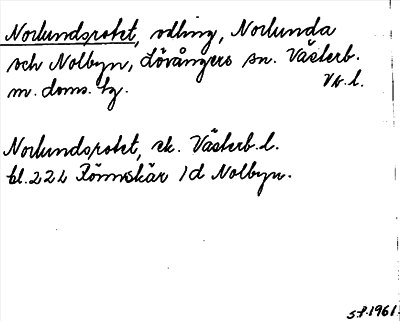 Norlundsrotet, odling, Norlunda
och Nolbyn, Lövångers sn. Västerb.
m. doms. tg. Vb. l.
Norlundsrotet, ek. Västerb. l.
bl. 222 Rönnskär 1d Nolbyn.
S.P. 1961